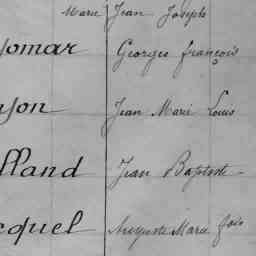 Marie Jean Joseph
omar Georges françois
son Jean Marie Louis
lland Jean Baptiste
cquel Auguste Marie fois